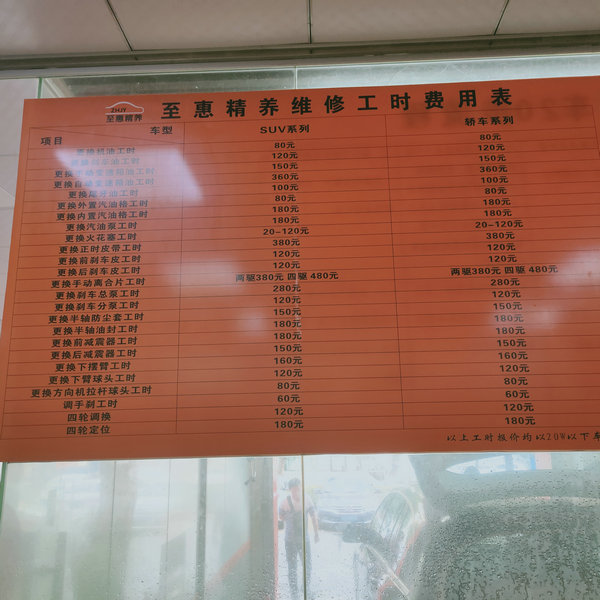 ZHJY
至惠精养
至惠精养维修工时费用表
车型 SUV系列 轿车系列
项目
更换机油工时 80元 80元
更换刹车油工时 120元 120元
更换手动变速箱油工时 150元 150元
更换自动变速箱油工时 360元 360元
更换尾牙油工时 100元 100元
更换外置汽油格工时 80元 80元
更换内置汽油格工时 180元 180元
更换汽油泵工时 180元 180元
更换火花塞工时 20-120元 20-120元
更换正时皮带工时 380元 380元
更换前刹车皮工时 120元 120元
更换后刹车皮工时 120元 120元
更换手动离合片工时 两驱380元 四驱 480元 两驱380元 四驱 480元
更换刹车总泵工时 280元 280元
更换刹车分泵工时 120元 120元
更换半轴防尘套工时 150元 150元
更换半轴油封工时 180元 180元
更换前减震器工时 180元 180元
更换后减震器工时 150元 150元
更换下摆臂工时 160元 160元
更换下臂球头工时 120元 120元
更换方向机拉杆球头工时 80元 80元
调手刹工时 60元 60元
四轮调换 120元 120元
四轮定位 180元 180元
以上工时报价均以20W以下车